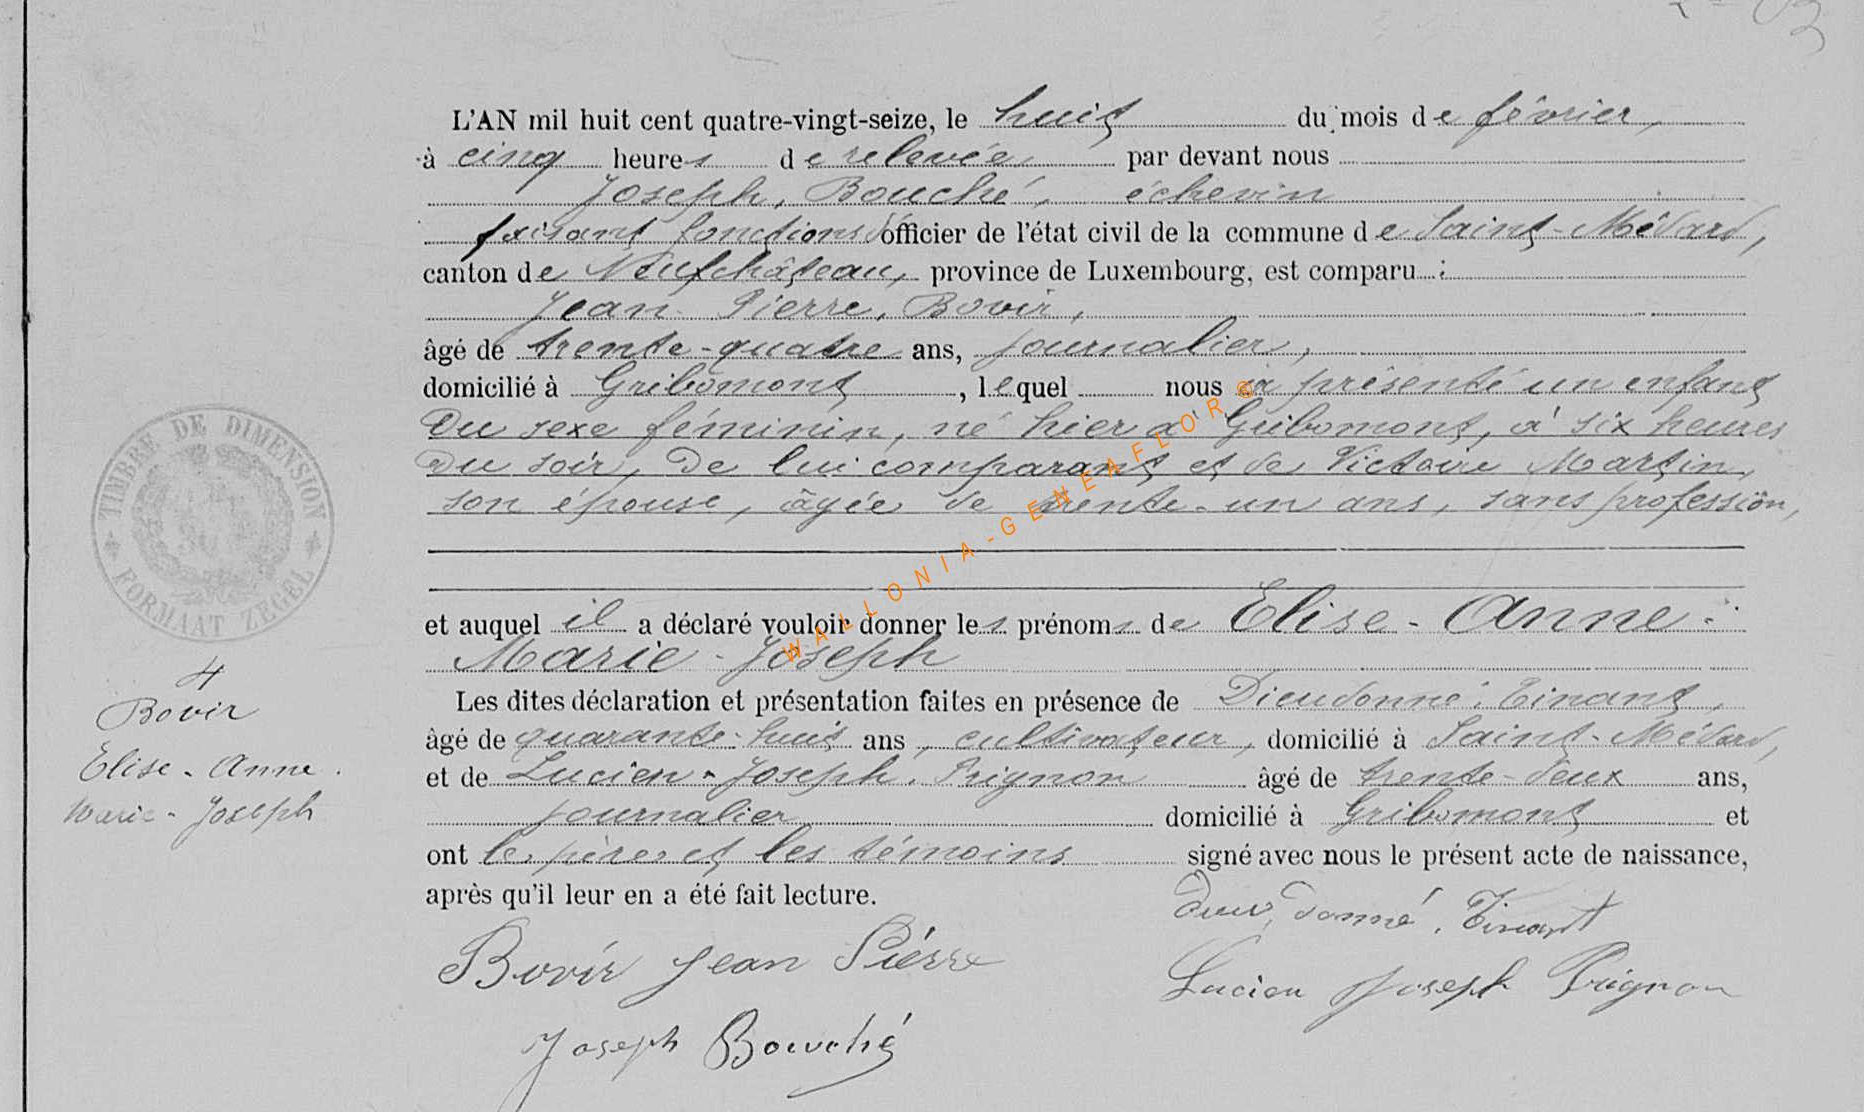 L'AN mil huit cent quatre-vingt-seize, le huit du mois de février,
à cinq heures de relevée, par devant nous
Joseph, Bouché, échevin
faisant fonctions d'officier de l'état civil de la commune de Saint-Médard,
canton de Neufchâteau, province de Luxembourg, est comparu :
Jean Pierre, Bovir,
âgé de trente-quatre ans, journalier,
domicilié à Gribomont, lequel nous a présenté un enfant
du sexe féminin, né hier à Gribomont, à six heures
du soir, de lui comparant et de Victoire Martin,
son épouse, âgée de trente-un ans, sans profession,
et auquel il a déclaré vouloir donner les prénoms de Elise-Anne-
Marie-Joseph
Les dites déclaration et présentation faites en présence de Dieudonné, Tinant,
âgé de quarante-huit ans, cultivateur, domicilié à Saint-Médard,
et de Lucien-Joseph, Prignon âgé de trente-deux ans,
journalier domicilié à Gribomont et
ont le père et les témoins signé avec nous le présent acte de naissance,
après qu'il leur en a été fait lecture.
Dieudonné, Tinant
Bovir Jean Piérre
Lucien Joseph Prignon
Joseph Bouché
TIMBRE DE DIMENSION
FORMAAT ZEGEL
4
Bovir
Elise-Anne.
Marie-Joseph
WALLONIA-GENEAFLOR ©